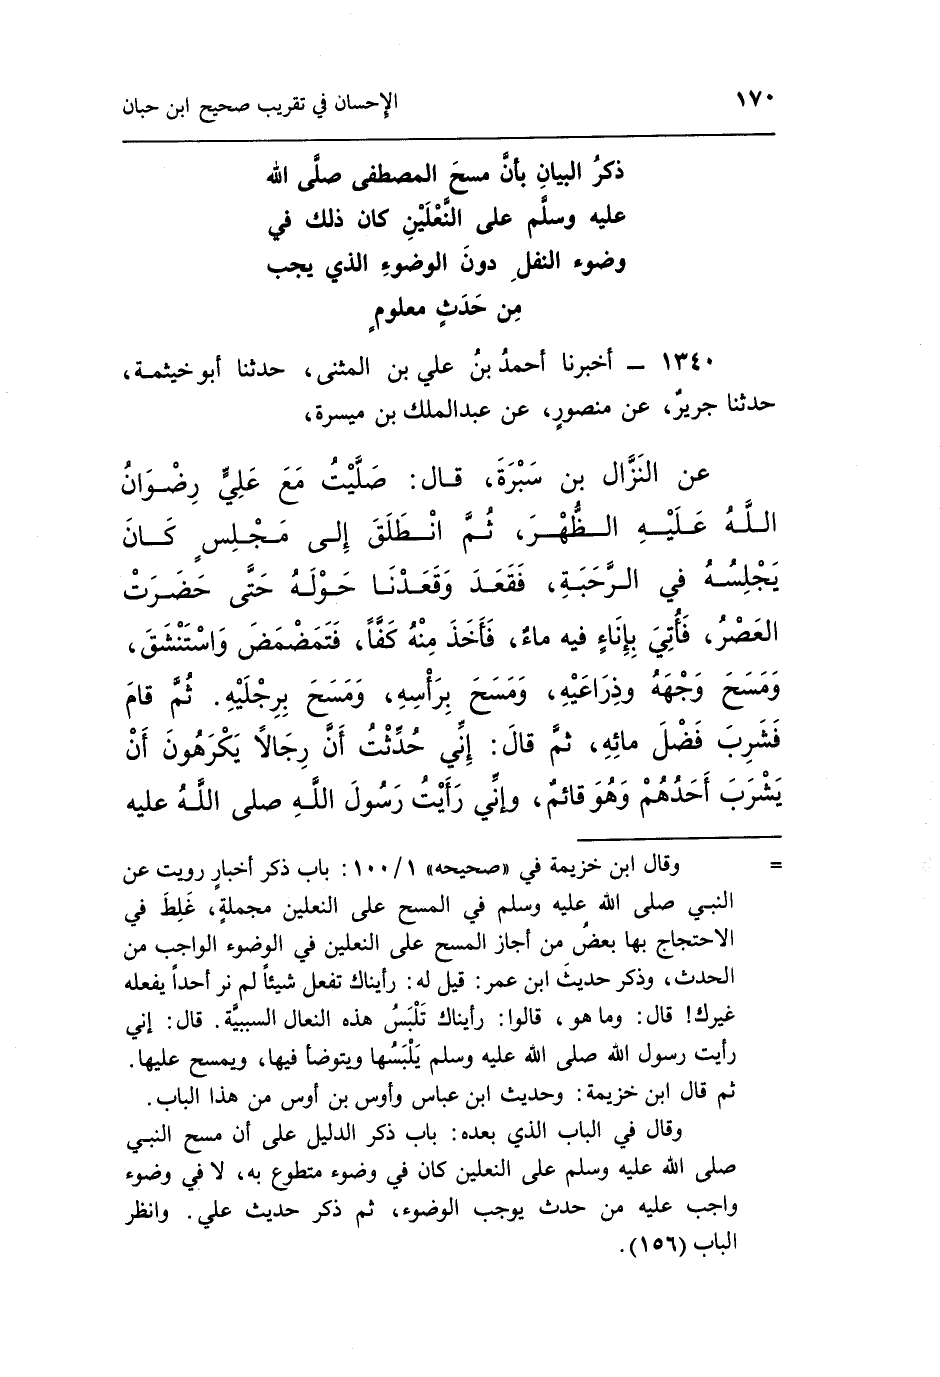 ١٧٠
الإحسان في تقريب صحيح ابن حبان
ذكرُ البيانِ بأنَّ مسحَ المصطفى صلَّى الله
عليه وسلَّم على النَّعْلَيْنِ كان ذلك في
وضوء النفلِ دونَ الوضوءِ الذي يجب
مِن حَدَثٍ معلومٍ
١٣٤٠ ـ أخبرنا أحمدُ بنُ علي بن المثنى، حدثنا أبو خيثمـة،
حدثنا جريرٌ، عن منصورٍ، عن عبدالملك بن ميسرة،
عن النَزَّال بن سَبْرَةَ، قـال: صَلَّيْتُ مَعَ عَلِيٍّ رِضْـوَانُ
اللَّـهُ عَـلَيْـهِ الـظُّهْـرَ، ثُـمَّ انْـطَلَقَ إِلـى مَـجْـلِسٍ كَـانَ
يَجْلِسُـهُ في الرَّحَبَةِ، فَقَعَـدَ وَقَعَـدْنَـا حَـوْلَـهُ حَتَّى حَضَـرَتْ
العَصْرُ، فَأُتِيَ بِإنَاءٍ فيه ماءٌ، فَأَخَذَ مِنْهُ كَفَّاً، فَتَمَضْمَضَ وَاسْتَنْشَقَ،
وَمَسَحَ وَجْهَهُ وذِرَاعَيْهِ، وَمَسَحَ بِرَأْسِهِ، ومَسَحَ بِرِجْلَيْهِ. ثُمَّ قامَ
فَشَرِبَ فَضْلَ مائِهِ، ثمَّ قالَ: إنِّي حُدِّثْتُ أَنَّ رِجَالاً يَكْرَهُونَ أَنْ
يَشْرَبَ أَحَدُهُمْ وَهُوَ قائمٌ، وإنِّي رَأَيْتُ رَسُولَ اللَّـهِ صلى اللَّـهُ عليه
= وقال ابن خزيمة في «صحيحه» ١/١٠٠: باب ذكر أخبارٍ رويت عن
النبـي صلى الله عليه وسلم في المسح على النعلين مجملةٍ، غَلِطَ في
الاحتجاج بها بعضُ من أجاز المسح على النعلين في الوضوء الواجب من
الحدث، وذكر حديثَ ابن عمر: قيل له: رأيناك تفعل شيئاً لم نر أحداً يفعله
غيرك! قال: وما هو، قالوا: رأيناك تَلْبَسُ هذه النعال السببيَّة. قال: إني
رأيت رسول الله صلى الله عليه وسلم يَلْبَسُها ويتوضأ فيها، ويمسح عليها.
ثم قال ابن خزيمة: وحديث ابن عباس وأوس بن أوس من هذا الباب.
وقال في الباب الذي بعده: باب ذكر الدليل على أن مسح النبـي
صلى الله عليه وسلم على النعلين كان في وضوء متطوع به، لا في وضوء
واجب عليه من حدث يوجب الوضوء، ثم ذكر حديث علي. وانظر
الباب (١٥٦).